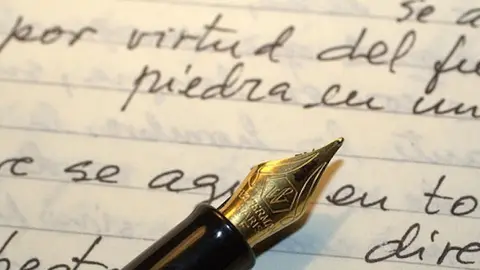 se a
por virtud del fu
piedra en un
re se agu en to
dire